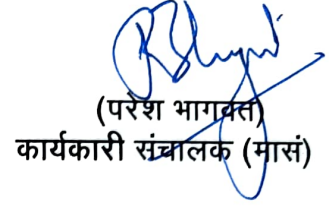 (परेश भागवत)
कार्यकारी संचालक (मासं)